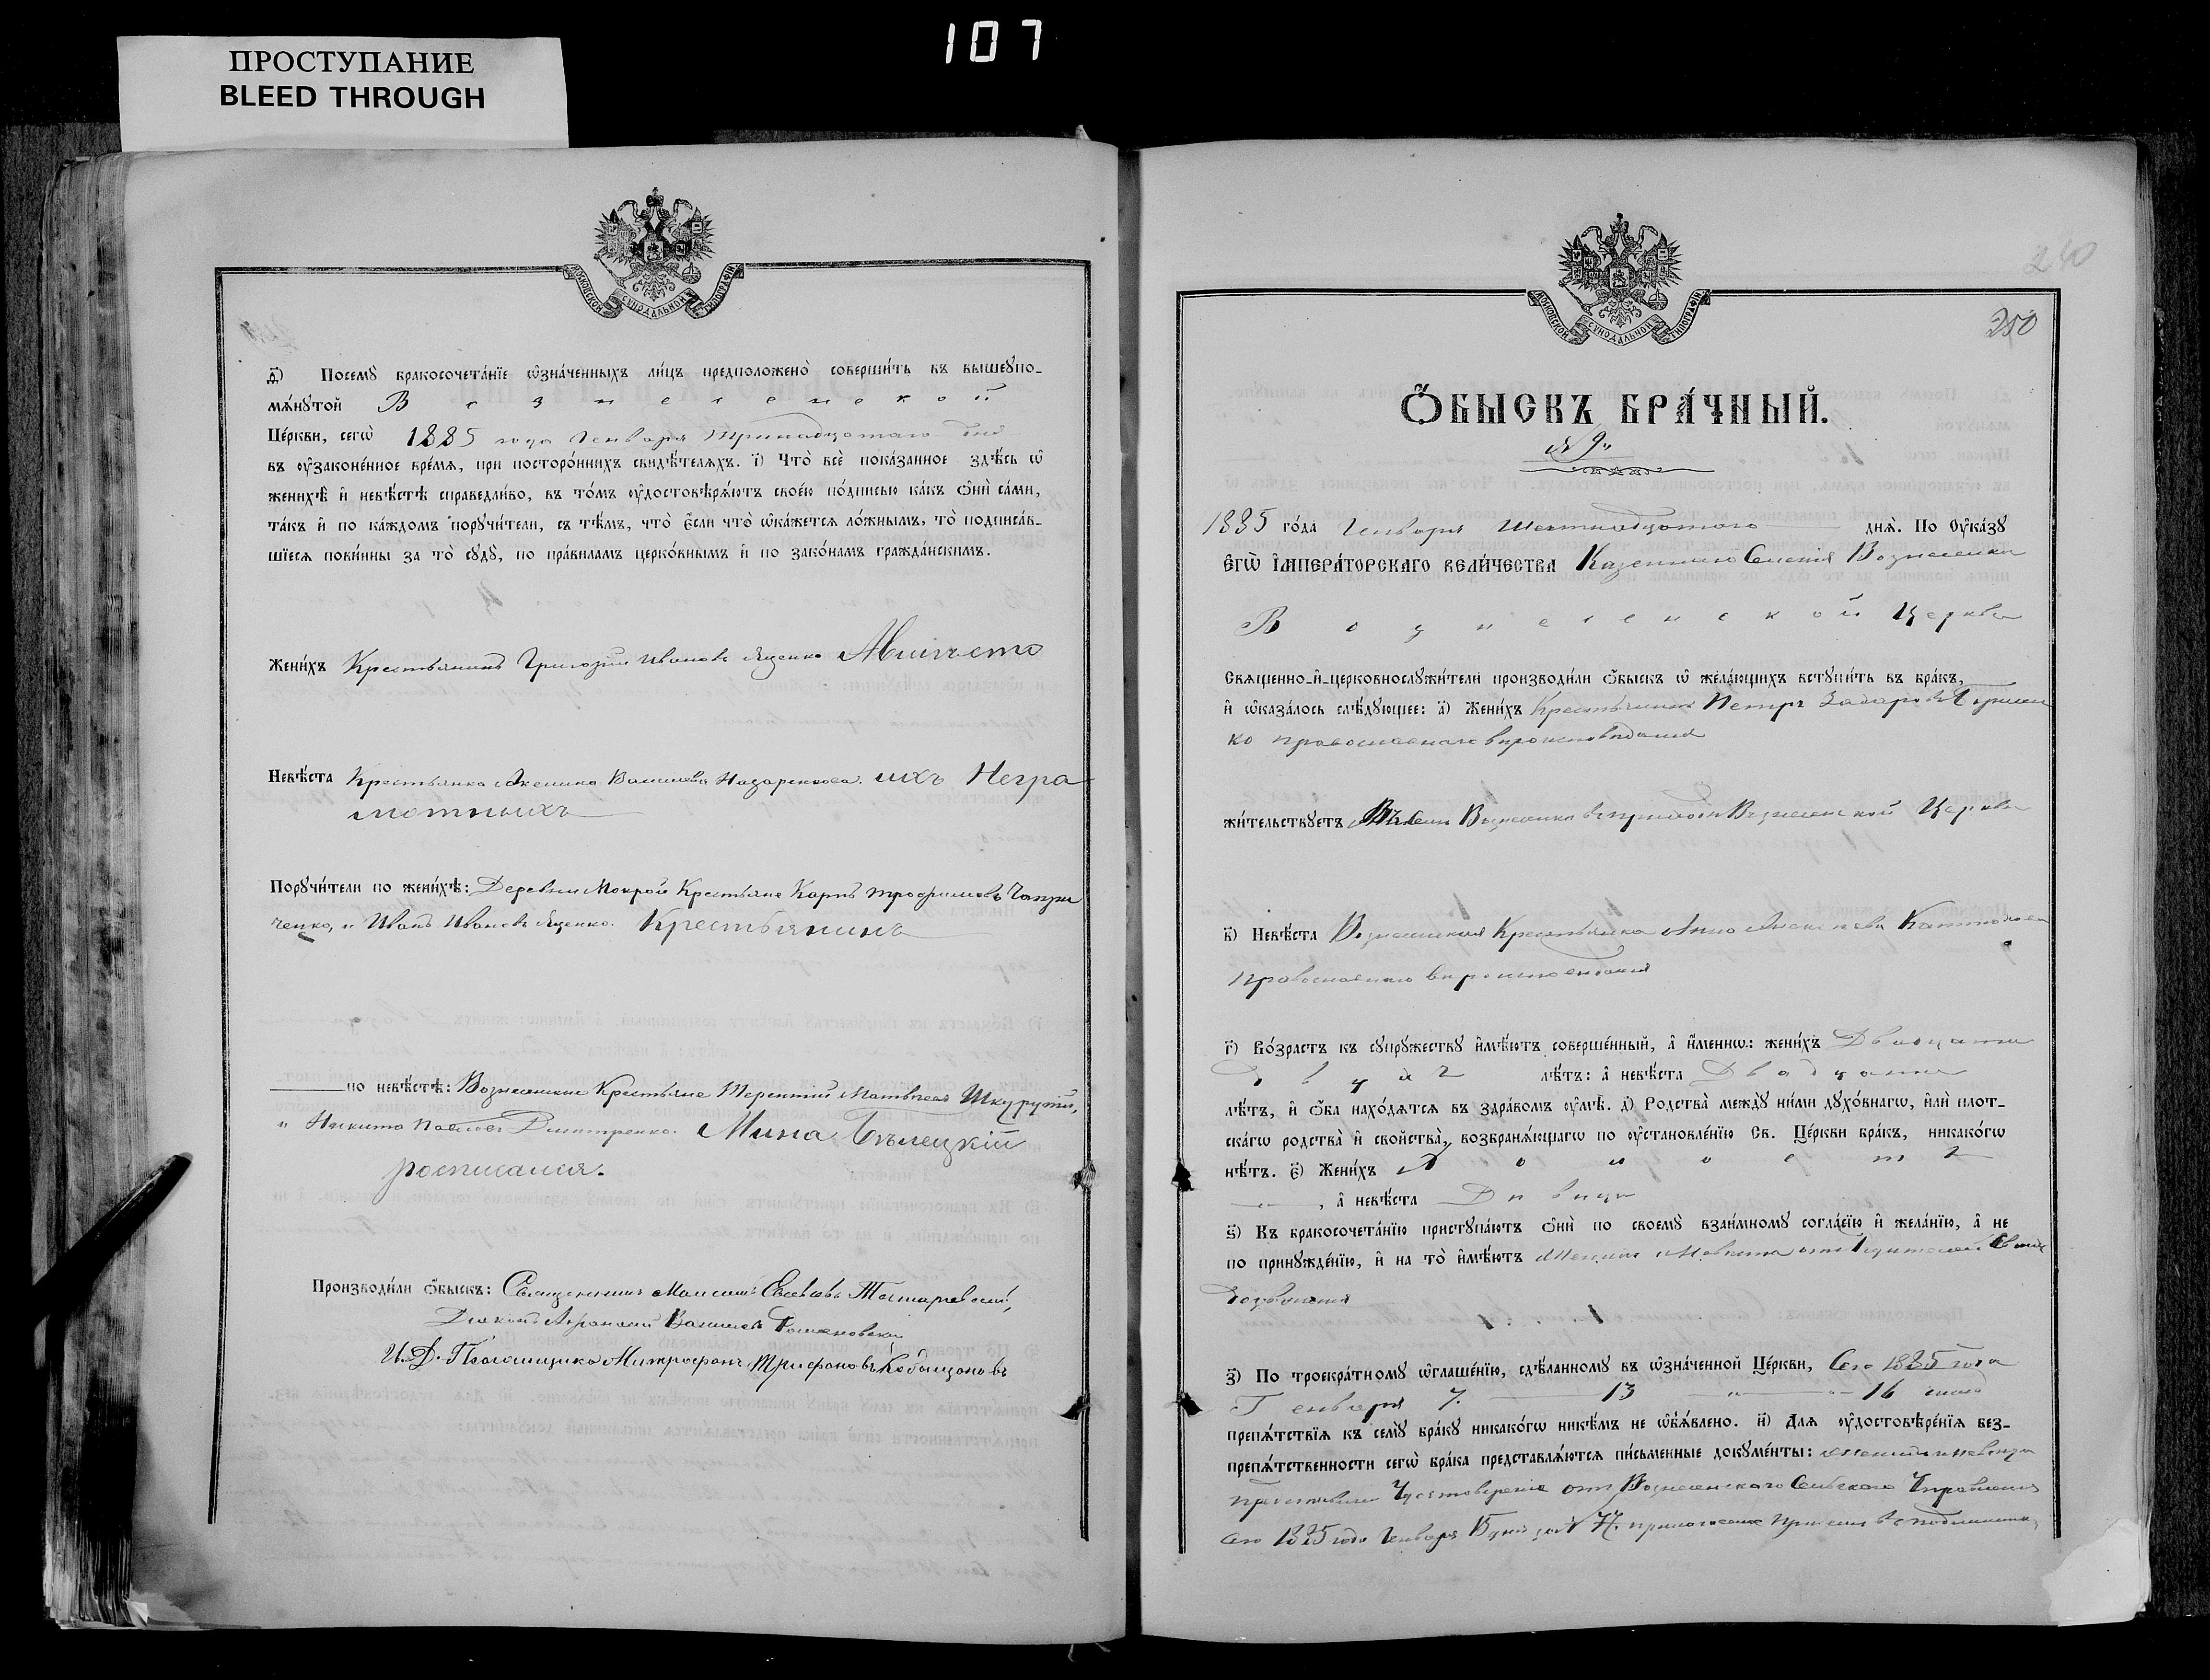 107
ПРОСТУПАНИЕ
BLEED THROUGH
МОСКОВСКОЙ СѴНОДАЛЬНОЙ ТИПОГРАФІИ
д҃) Посемꙋ бракосочета́нїе ѡ҆зна́ченныхъ ли́цъ предположено̀ соверши́ть въ вышеꙋпо-
мѧ́нꙋтой Вознесенской
Це́ркви, сегѡ̀ 1885 года Генваря Тринадцатаго дня
въ ᲂу҆законе́нное вре́мѧ, при посторо́ннихъ свидѣ́телѧхъ. і҃) Что̀ всѐ пока́занное здѣ́сь ѡ҆
женихѣ̀ и҆ невѣ́стѣ справедли́во, въ то́мъ ᲂу҆достовѣрѧ́ютъ свое́ю по́дписью ка́къ ѻ҆нѝ са́ми,
та́къ и҆ по ка́ждомъ порꙋчи́тели, съ тѣ́мъ, что̀ є҆́сли что̀ ѡ҆ка́жетсѧ ло́жнымъ, то̀ подписа́в-
шїесѧ пови́нны за то̀ сꙋдꙋ̀, по пра́виламъ церко́внымъ и҆ по зако́намъ гражда́нскимъ.
Жени́хъ Крестьянинъ Григорій Ивановъ Яценко
Невѣ́ста Крестьянка Васильева Назаренкова. ихъ Негра
мотныхъ
Порꙋчи́тели по женихѣ̀: Деревни Мокрой Крестьяне Карпъ Трофимовъ
ченко, и Иванъ Ивановъ Яценко. Крестьянинъ
по невѣ́стѣ: Вознесенские Крестьяне Терентий Матвѣевъ Шкурупій,
и Никита Павловъ Дмитренко. Мина Бѣлецкій
росписался.
Производи́ли ѻ҆́быскъ: Священникъ
Диаконъ Василиевъ
И. Д. Псаломщика Митрофанъ Трифоновъ
240
250
Ѻ҆́БЫСКЪ БРА́ЧНЫЙ.
№ 9й
МОСКОВСКОЙ СѴНОДАЛЬНОЙ ТИПОГРАФІИ
1885 го́да Генваря Шестнадцатаго днѧ̀. По Оу҆ка́зꙋ
Є҆гѡ̀ І҆мпера́торскаго Вели́чества Казеннаго Селения Вознесенки
Вознесенской Церкви
Сващенно-и҆-церковнослꙋжи́тели производи́ли ѻ҆́быскъ ѡ҆ жела́ющихъ встꙋпи́ть въ бра́къ,
и҆ ѡ҆каза́лось слѣ́дꙋющее: а҃) Жени́хъ Крестьянинъ Петръ Захаровъ
ко православнаго вѣроисповѣдания
жи́тельствꙋетъ Вознесенки въ приходѣ Вознесенской Церкви
в҃) Невѣ́ста Вознесенская Крестьянка Анна
Православнаго вѣроисповѣдания
г҃) Во́зрастъ къ сꙋпрꙋжествꙋ и҆мѣ́ютъ соверше́нный, а҆ и҆́меннѡ: жени́хъ Двадцати
двухъ лѣ́тъ: а҆ невѣ́ста Двадцати
лѣ́тъ, и҆ ѻ҆́ба нахо́дѧтсѧ въ здра́вомъ ᲂу҆мѣ̀. д҃) Родства̀ междꙋ̀ ни́ми дꙋхо́внагѡ, и҆лѝ плот-
ска́гѡ родства̀ и҆ свойства̀, возбранѧ́ющагѡ по ᲂу҆становле́нїю Св. Це́ркви бра́къ, никако́гѡ
нѣ́тъ. є҃) Жени́хъ Холостъ
, а҆ невѣ́ста Дѣвица
ѕ҃) Къ бракосочета́нїю пристꙋпа́ютъ ѻ҆нѝ по своемꙋ̀ взаи́мномꙋ согла́сїю и҆ жела́нїю, а҆ не
по принꙋжде́нїю, и҆ на то̀ и҆мѣ́ютъ Женихъ и Невѣста отъ Родителей Своихъ
Дозволения
з҃) По троекра́тномꙋ ѡ҆глаше́нїю, сдѣ́ланномꙋ въ ѡ҆зна́ченной Це́ркви, Сего 1885 года
Генваря 7. 13 и 16 чиселъ
препѧ́тствїѧ къ семꙋ̀ бра́кꙋ никако́гѡ никѣ́мъ не ѡ҆б̾ѧ́влено. и҃) Длѧ ᲂу҆достовѣре́нїѧ без-
препѧ́тственности сегѡ̀ бра́ка представлѧ́ютсѧ пи́сьменные докꙋме́нты: Женихъ и невѣста
представили Удостоверение отъ Вознесенского Сельского Управления
сего 1885 года Генваря приложенное при семъ в подлиннике,